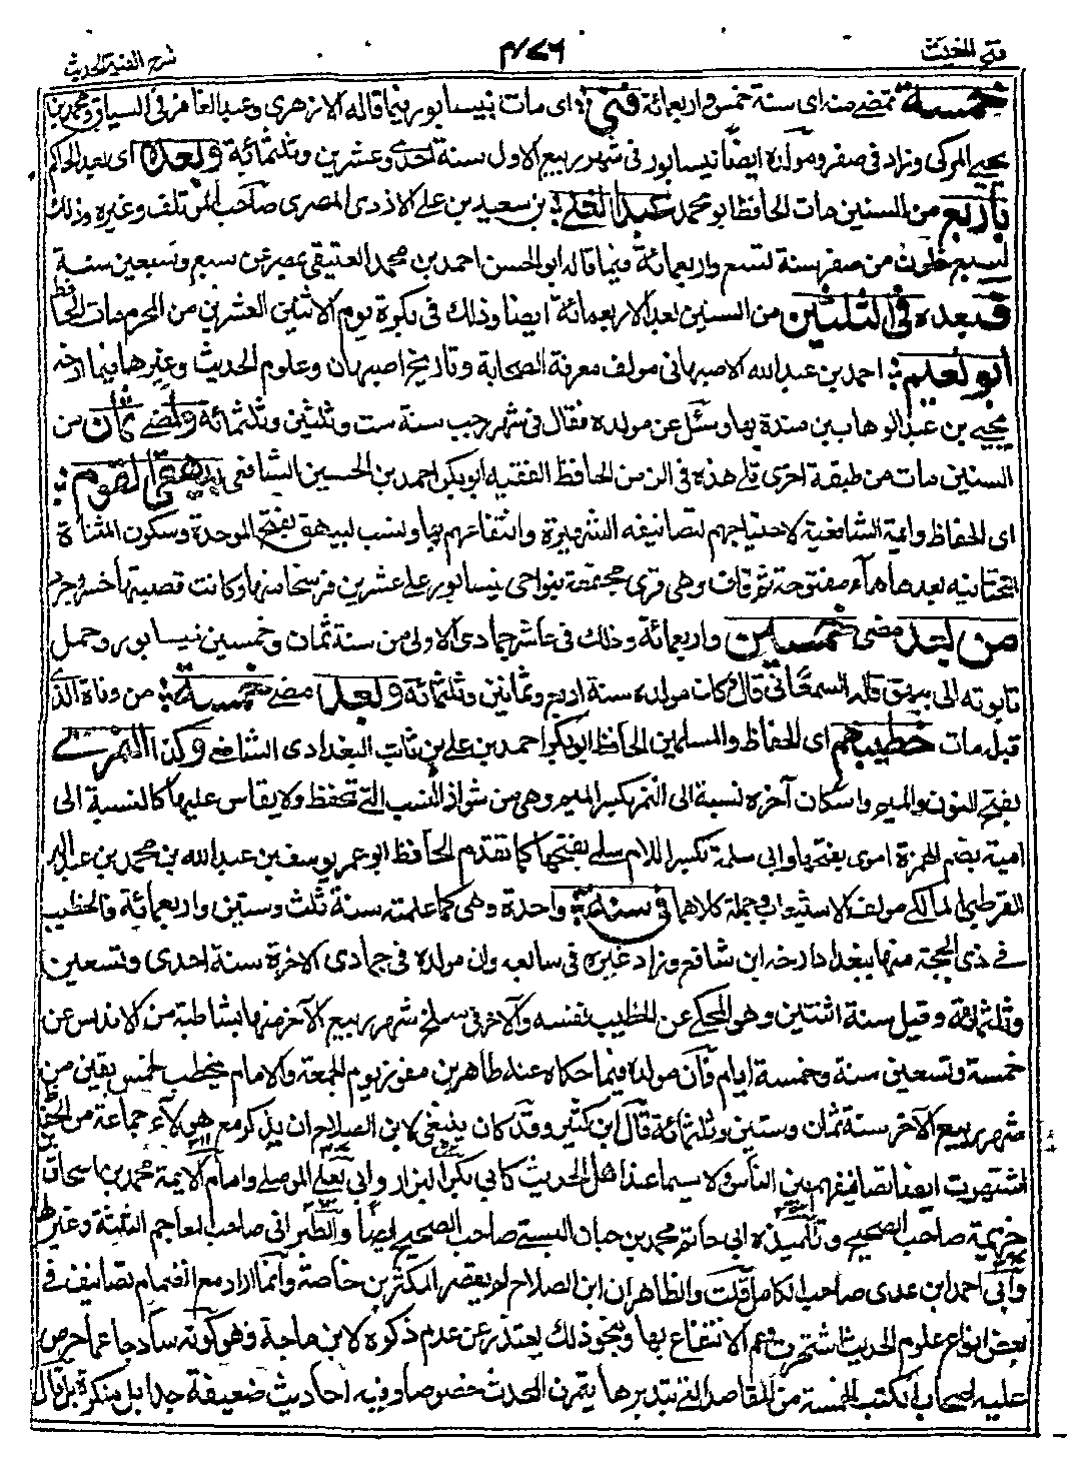 فتح المغيث ٤٧٦ شرح الفية الحديث
خمسة تمضے منه اى سنة خمس واربعمائة فنى ؛ اى مات بنيسابور فيما قاله الازهرى وعبد الغافر فى السياق ومحمد بن
يحيى المزكى وزاد فى صفر ومولده ايضًا نيسابور فى شهر ربيع الاول سنة احدى وعشرين وثلثمائة وبعده اى بعد الحاكم
باربع من السنين مات الحافظ ابو محمد عبد الغنے ؛ بن سعيد بن على الازدى المصرى صاحب المؤتلف وغيره وذلك
لسبع خلون من صفر سنة تسع واربعمائة فيما قاله ابو الحسن احمد بن محمد العتيقى بمصر عن سبع وسبعين سنة
فبعده فى الثلثين من السنين بعد الاربعمائة ايضا وذلك فى بكرة يوم الاثنين العشرين من المحرم مات الحافظ
ابو نعيم ؛ احمد بن عبد الله الاصبهانى مولف معرفة الصحابة وتاريخ اصبهان وعلوم الحديث وغيرها فيما ارخه
يحيى بن عبد الوهاب بن مندة بها وسئل عن مولده فقال فى شهر رجب سنة ست وثلثين وثلثمائة ولمضے ثمان من
السنين مات من طبقة اخرى تلى هذه فى الزمن الحافظ الفقيه ابو بكر احمد بن الحسين الشافعى بيهقى القوم ؛
اى الحفاظ وائمة الشافعية لاحتياجهم لتصانيفه الشهيرة وانتفاعهم بها ونسب لبيهق بفتح الموحدة وسكون المثناة
التحتانية بعدها هاء مفتوحة ثم قاف وهى قرى مجتمعة بنواحى نيسابور على عشرين فرسخا منها وكانت قصبتها خسروجرد
من بعد مضى خمسين واربعمائة وذلك فى عاشر جمادى الاولى من سنة ثمان وخمسين نيسابور وحمل
تابوته الى بيهق قاله السمعانى قال وكان مولده سنة اربع وثمانين وثلثمائة وبعد مضے خمسة ؛ من وفاة الذى
قبل مات خطيبهم اى للحفاظ والمسلمين الحافظ ابو بكر احمد بن على بن ثابت البغدادى الشافعى وكذا النمرے
بفتح النون والميم واسكان آخره نسبة الى النمر بكسر الميم وهى من شواذ النسب التے تحفظ ولا يقاس عليها كالنسبة الى
امية بضم الهمزة اموى بفتحها وابى سلمة بكسر اللام سلمے بفتحها كما تقدم الحافظ ابو عمر يوسف بن عبد الله بن محمد بن عبد البر
القرطبى المالكے مولف الاستيعاب وجملة كلاهما فى سنة ؛ واحدة وهى كما علمته سنة ثلث وستين واربعمائة فالخطيب
فے ذى الحجة منها ببغداد ارخه ابن شافع وزاد غيره فى سابعه وان مولده فى جمادى الاخرة سنة احدى وتسعين
وثلثمائة وقيل سنة اثنتين وهو المحكے عن الخطيب نفسه والآخر فى سلخ شهر ربيع الآخر منها بشاطبة من الاندلس عن
خمسة وتسعين سنة وخمسة ايام فان مولده فيما حكاه عنه طاهر بن مفوز يوم الجمعة والامام يخطب لخمس بقين من
شهر ربيع الآخر سنة ثمان وستين وثلثمائة قال ابن كثير وقد كان ينبغى لابن الصلاح ان يذكر مع هولاء جماعة من الحفاظ
اشتهرت ايضا تصانيفهم بين الناس ولا سيما عند اهل الحديث كابى بكر البزار وابى يعلے الموصلے وامام الايمة محمد بن اسحاق بن
خزيمة صاحب الصحيح وتلميذه ابى حاتم محمد بن حبان البستے صاحب الصحيح ايضًا والطبرانى صاحب المعاجم الثلثة وغيرها
وابى احمد ابن عدى صاحب الكامل قلت والظاهر ان ابن الصلاح لم يقصر المكثرين خاصة وانما اراد مع انضمام تصانيف فى
بعض انواع علوم الحديث اشتهرت وعم الانتفاع بها وبنحو ذلك يعتذر عن عدم ذكره لابن ماجة وهو كونه ساذجا عما حرص
عليه اصحاب الكتب الخمسة من المقاصد التے بتدبرها يتمرن المحدث خصوصا وفيه احاديث ضعيفة جدا بل منكرة بل قال